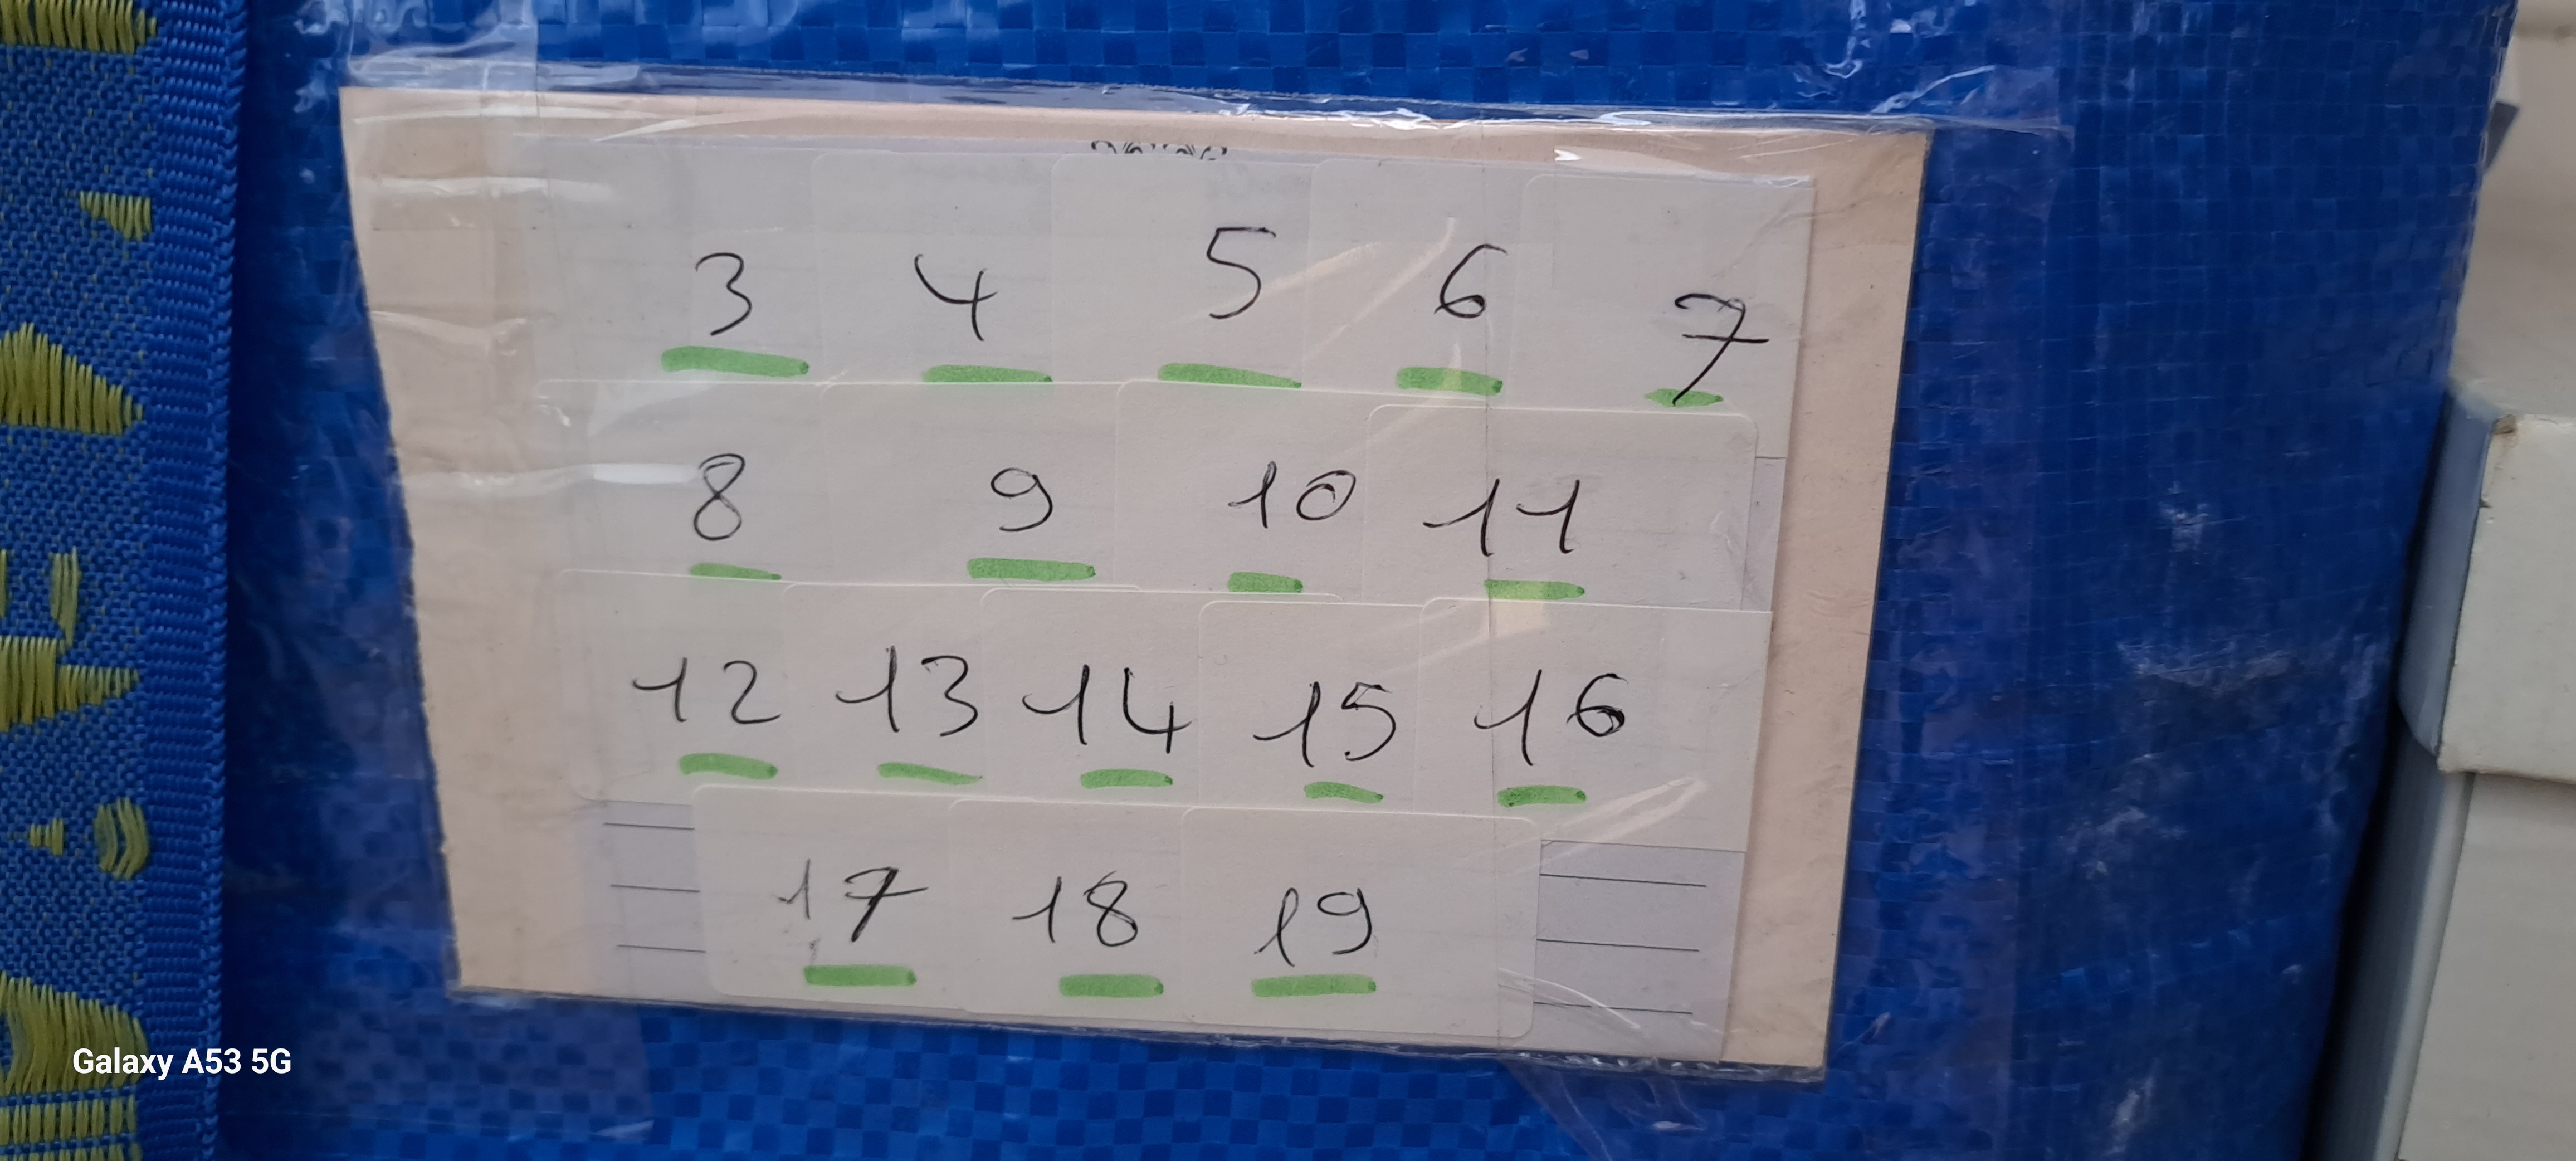 3 4 5 6 7
8 9 10 11
12 13 14 15 16
17 18 19
Galaxy A53 5G